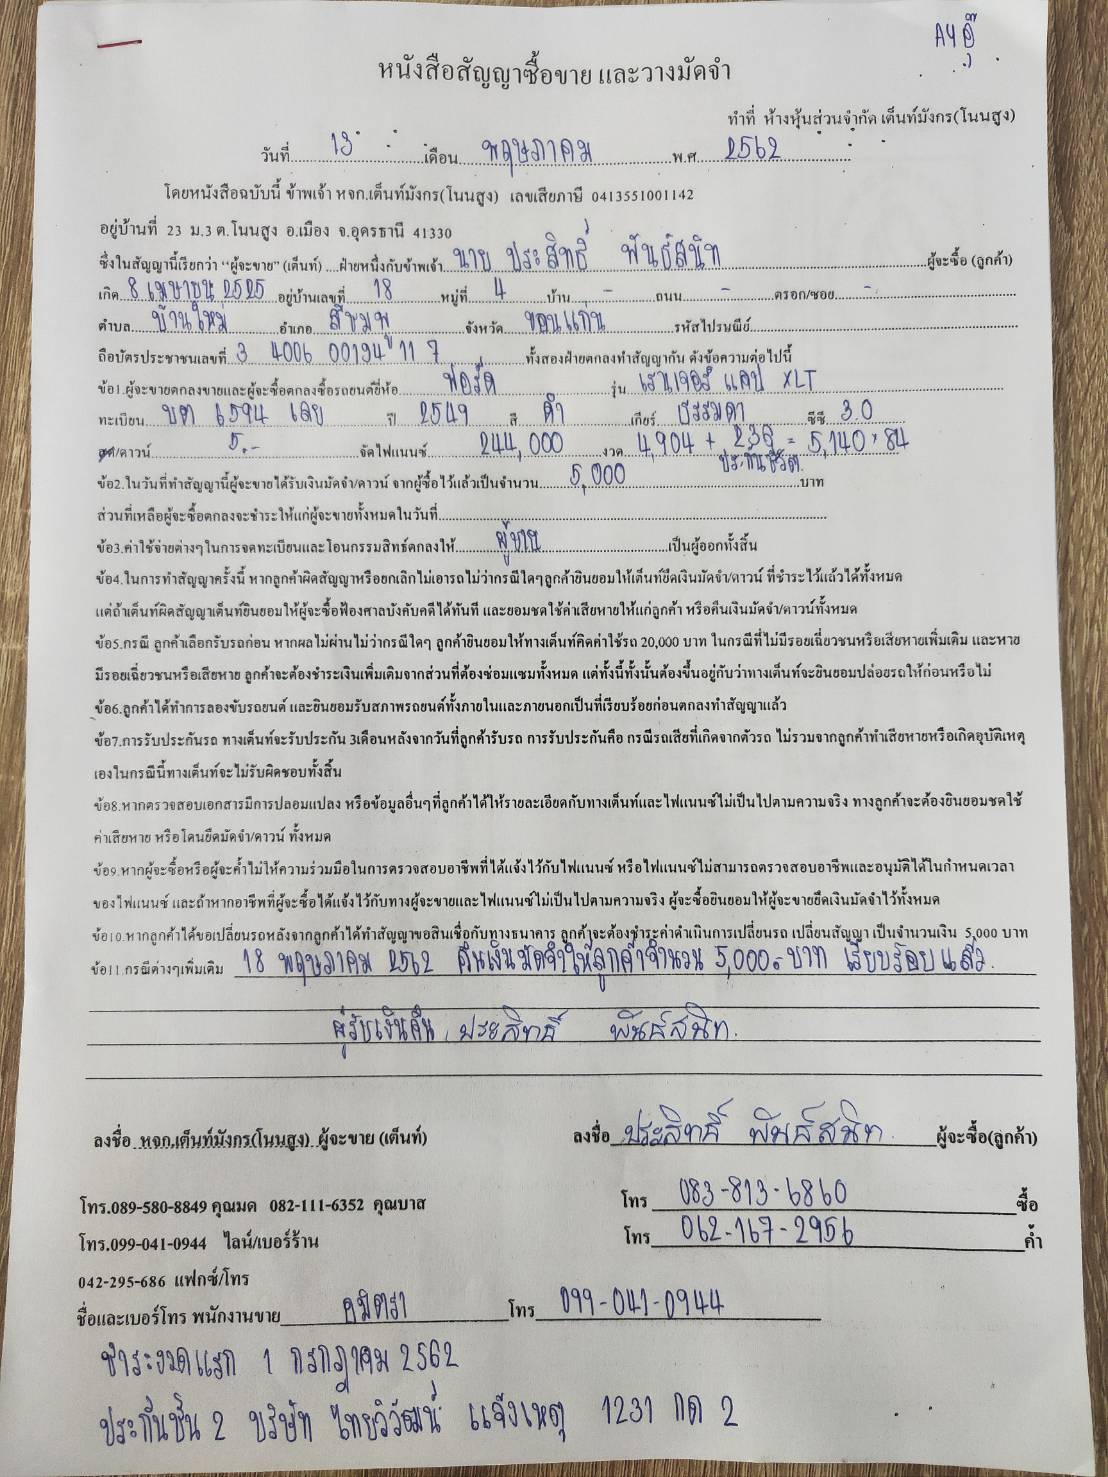 A4อุ๊
หนังสือสัญญาซื้อขาย และวางมัดจำ
ทำที่ ห้างหุ้นส่วนจำกัด เต็นท์มังกร(โนนสูง)
วันที่ 13 เดือน พฤษภาคม พ.ศ. 2562
โดยหนังสือฉบับนี้ ข้าพเจ้า หจก.เต็นท์มังกร(โนนสูง) เลขเสียภาษี 0413551001142
อยู่บ้านที่ 23 ม.3 ต.โนนสูง อ.เมือง จ.อุดรธานี 41330
ซึ่งในสัญญานี้เรียกว่า “ผู้จะขาย” (เต็นท์) ....ฝ่ายหนึ่งกับข้าพเจ้า นาย ประสิทธิ์ พันธ์สนิท ผู้จะซื้อ (ลูกค้า)
เกิด 8 เมษายน 2525 อยู่บ้านเลขที่ 18 หมู่ที่ 4 บ้าน - ถนน - ตรอก/ซอย -
ตำบล บ้านใหม่ อำเภอ สีชมพู จังหวัด ขอนแก่น รหัสไปรษณีย์
ถือบัตรประชาชนเลขที่ 3 4006 00194 11 7 ทั้งสองฝ่ายตกลงทำสัญญากัน ดังข้อความต่อไปนี้
ข้อ1.ผู้จะขายตกลงขายและผู้จะซื้อตกลงซื้อรถยนต์ยี่ห้อ ฟอร์ด รุ่น เรนเจอร์ แคป XLT
ทะเบียน บต 6594 เลย ปี 2549 สี ดำ เกียร์ ธรรมดา ซีซี 3.0
สด/ดาวน์ 5.- จัดไฟแนนซ์ 244,000 งวด 4,904 + 236 = 5,140 × 84
ประกันชีวิต
ข้อ2.ในวันที่ทำสัญญานี้ผู้จะขายได้รับเงินมัดจำ/ดาวน์ จากผู้ซื้อไว้แล้วเป็นจำนวน 5,000 บาท
ส่วนที่เหลือผู้จะซื้อตกลงจะชำระให้แก่ผู้จะขายทั้งหมดในวันที่
ข้อ3.ค่าใช้จ่ายต่างๆในการจดทะเบียนและโอนกรรมสิทธิ์ตกลงให้ ผู้ขาย เป็นผู้ออกทั้งสิ้น
ข้อ4.ในการทำสัญญาครั้งนี้ หากลูกค้าผิดสัญญาหรือยกเลิกไม่เอารถไม่ว่ากรณีใดๆลูกค้ายินยอมให้เต็นท์ยึดเงินมัดจำ/ดาวน์ ที่ชำระไว้แล้วได้ทั้งหมด
แต่ถ้าเต็นท์ผิดสัญญาเต็นท์ยินยอมให้ผู้จะซื้อฟ้องศาลบังคับคดีได้ทันที และยอมชดใช้ค่าเสียหายให้แก่ลูกค้า หรือคืนเงินมัดจำ/ดาวน์ทั้งหมด
ข้อ5.กรณี ลูกค้าเลือกรับรถก่อน หากผลไม่ผ่านไม่ว่ากรณีใดๆ ลูกค้ายินยอมให้ทางเต็นท์คิดค่าใช้รถ 20,000 บาท ในกรณีที่ไม่มีรอยเฉี่ยวชนหรือเสียหายเพิ่มเติม และหาย
มีรอยเฉี่ยวชนหรือเสียหาย ลูกค้าจะต้องชำระเงินเพิ่มเติมจากส่วนที่ต้องซ่อมแซมทั้งหมด แต่ทั้งนี้ทั้งนั้นต้องขึ้นอยู่กับว่าทางเต็นท์จะยินยอมปล่อยรถให้ก่อนหรือไม่
ข้อ6.ลูกค้าได้ทำการลองขับรถยนต์ และยินยอมรับสภาพรถยนต์ทั้งภายในและภายนอกเป็นที่เรียบร้อยก่อนตกลงทำสัญญาแล้ว
ข้อ7.การรับประกันรถ ทางเต็นท์จะรับประกัน 3เดือนหลังจากวันที่ลูกค้ารับรถ การรับประกันคือ กรณีรถเสียที่เกิดจากตัวรถ ไม่รวมจากลูกค้าทำเสียหายหรือเกิดอุบัติเหตุ
เองในกรณีนี้ทางเต็นท์จะไม่รับผิดชอบทั้งสิ้น
ข้อ8.หากตรวจสอบเอกสารมีการปลอมแปลง หรือข้อมูลอื่นๆที่ลูกค้าได้ให้รายละเอียดกับทางเต็นท์และไฟแนนซ์ไม่เป็นไปตามความจริง ทางลูกค้าจะต้องยินยอมชดใช้
ค่าเสียหาย หรือโดนยึดมัดจำ/ดาวน์ ทั้งหมด
ข้อ9.หากผู้จะซื้อหรือผู้จะค้ำไม่ให้ความร่วมมือในการตรวจสอบอาชีพที่ได้แจ้งไว้กับไฟแนนซ์ หรือไฟแนนซ์ไม่สามารถตรวจสอบอาชีพและอนุมัติได้ในกำหนดเวลา
ของไฟแนนซ์ และถ้าหากอาชีพที่ผู้จะซื้อได้แจ้งไว้กับทางผู้จะขายและไฟแนนซ์ไม่เป็นไปตามความจริง ผู้จะซื้อยินยอมให้ผู้จะขายยึดเงินมัดจำไว้ทั้งหมด
ข้อ10.หากลูกค้าได้ขอเปลี่ยนรถหลังจากลูกค้าได้ทำสัญญาขอสินเชื่อกับทางธนาคาร ลูกค้าจะต้องชำระค่าดำเนินการเปลี่ยนรถ เปลี่ยนสัญญา เป็นจำนวนเงิน 5,000 บาท
ข้อ11.กรณีต่างๆเพิ่มเติม 18 พฤษภาคม 2562 คืนเงินมัดจำให้ลูกค้าจำนวน 5,000.- บาท เรียบร้อยแล้ว.
ผู้รับเงินคืน ประสิทธิ์ พันธ์สนิท.
ลงชื่อ หจก.เต็นท์มังกร(โนนสูง) ผู้จะขาย (เต็นท์) ลงชื่อ ประสิทธิ์ พันธ์สนิท ผู้จะซื้อ(ลูกค้า)
โทร.089-580-8849 คุณมด 082-111-6352 คุณบาส โทร 083-813-6860 ซื้อ
โทร.099-041-0944 ไลน์/เบอร์ร้าน โทร 062-167-2956 ค้ำ
042-295-686 แฟกซ์/โทร
ชื่อและเบอร์โทร พนักงานขาย คมิตรา โทร 099-041-0944
ชำระงวดแรก 1 กรกฎาคม 2562
ประกันชั้น 2 บริษัท ไทยวิวัฒน์ แจ้งเหตุ 1231 กด 2